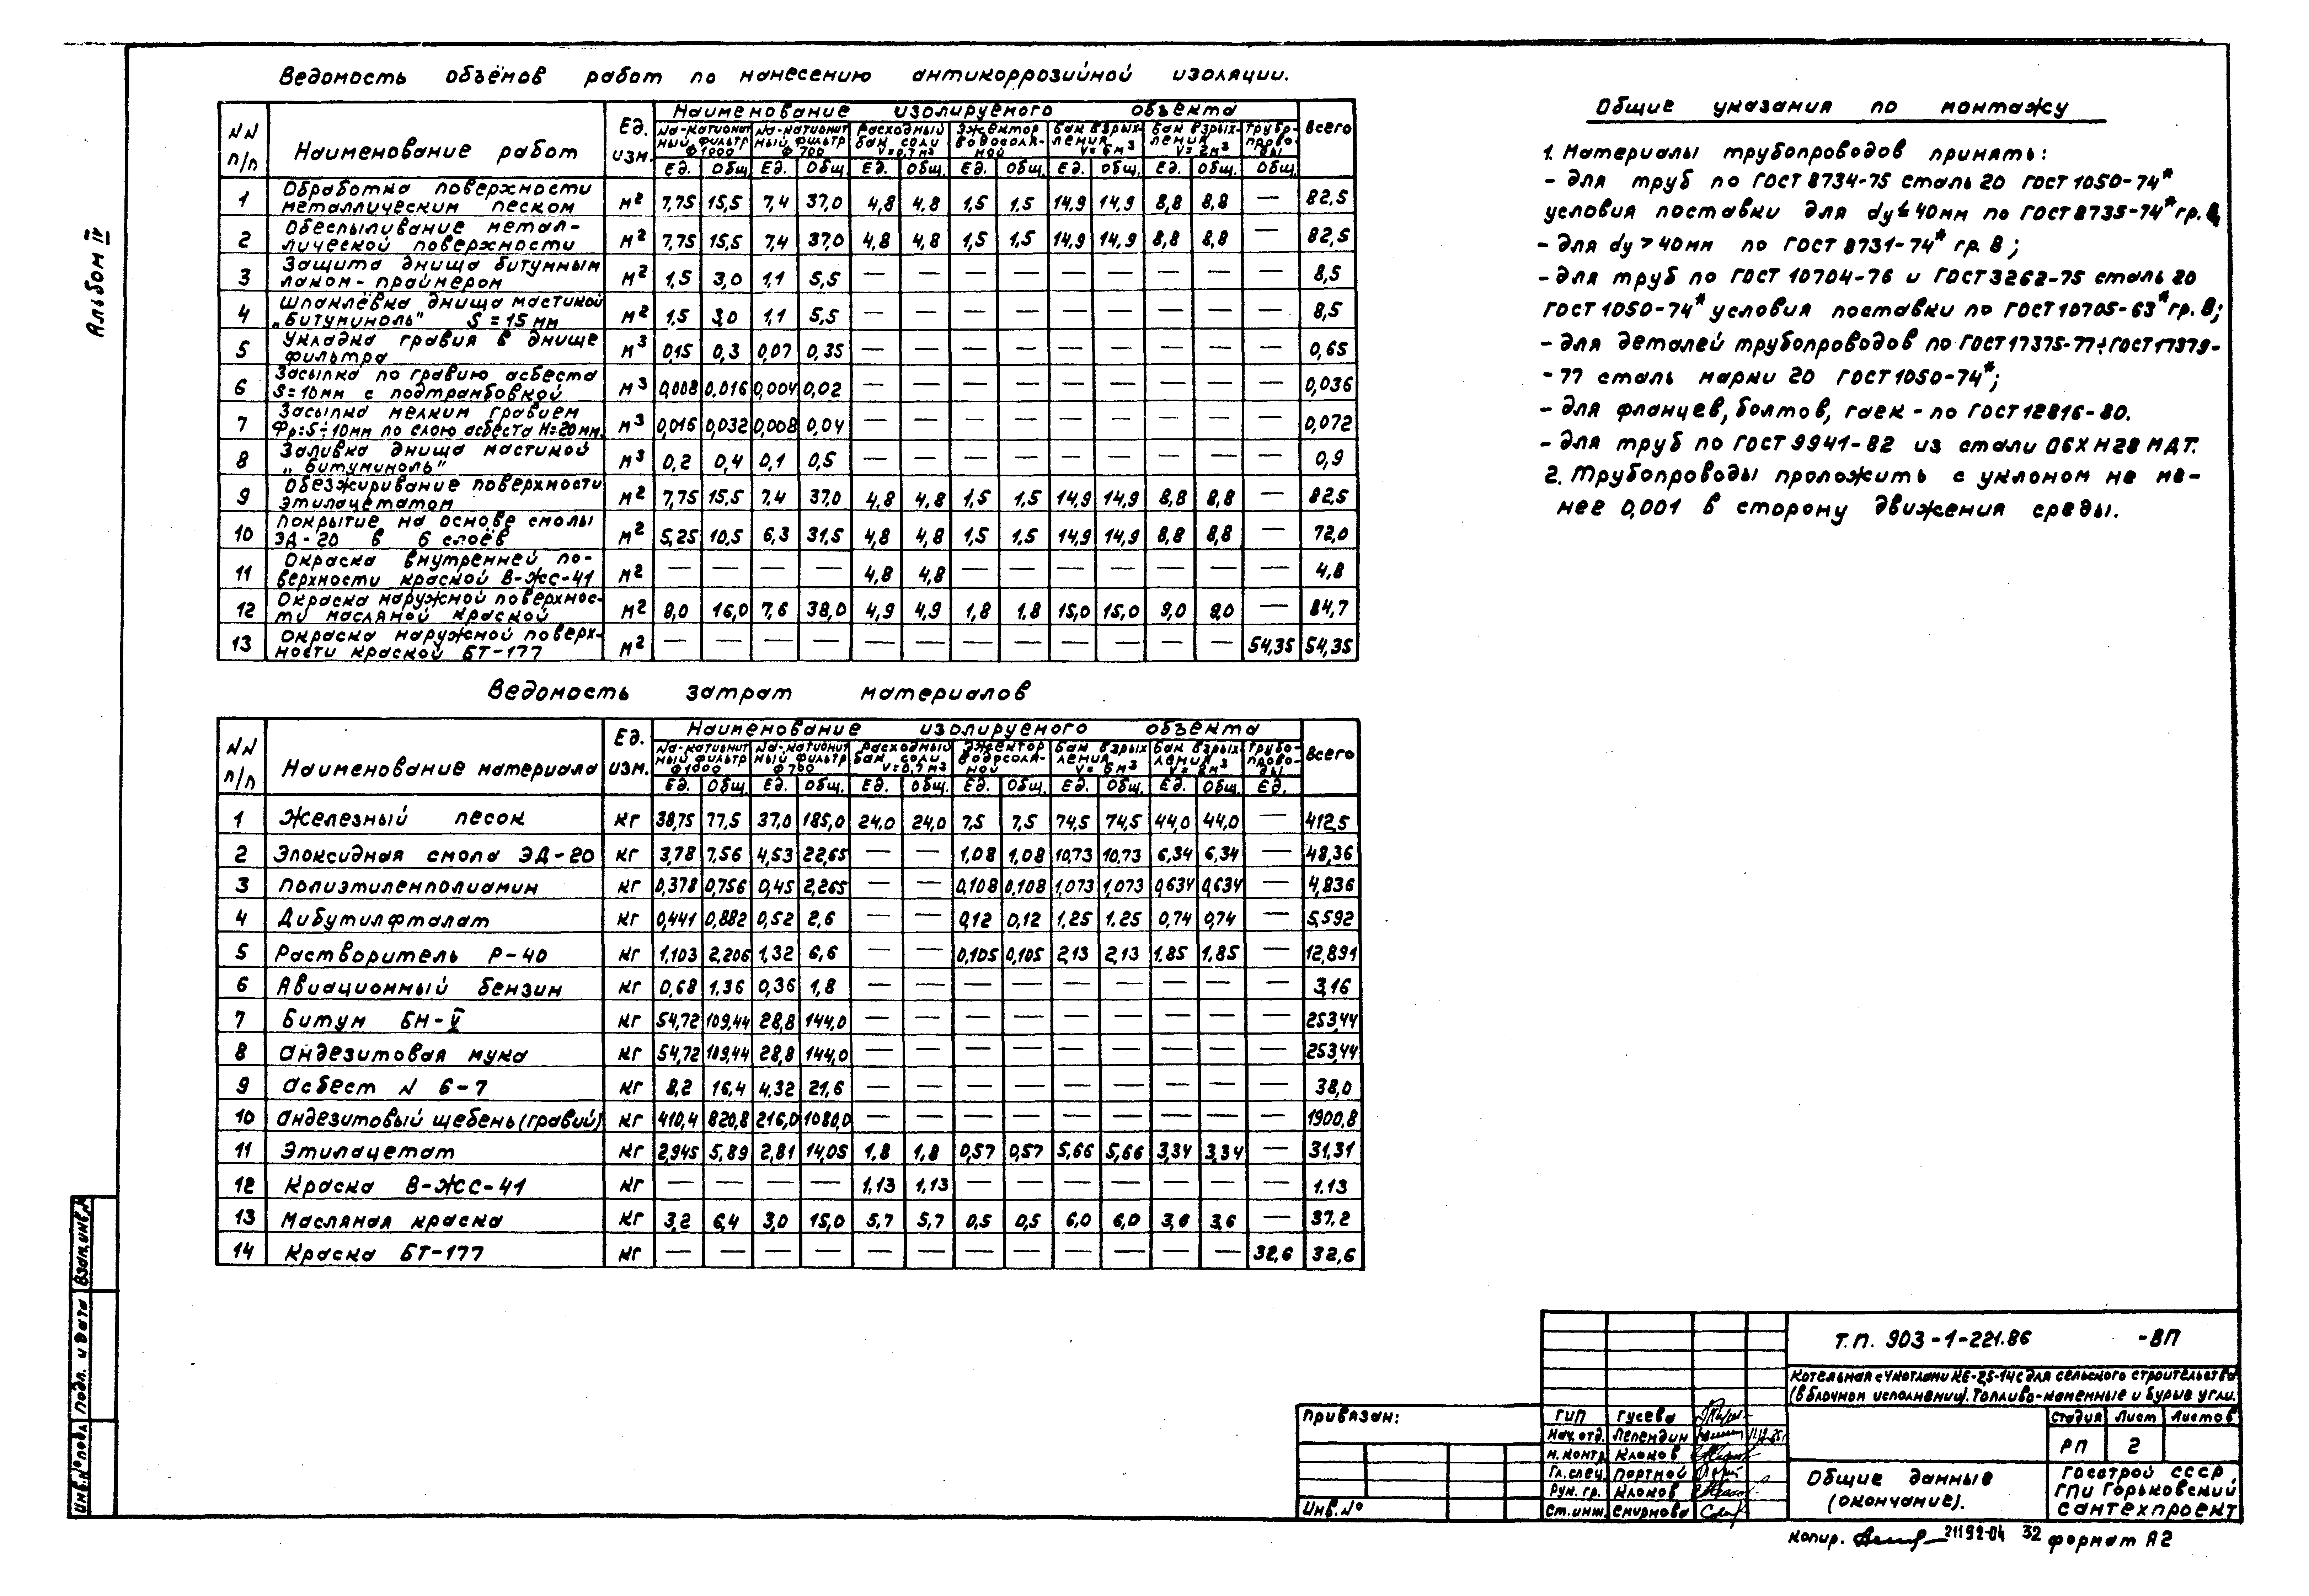 Альбом IV
Ведомость объёмов работ по нанесению антикоррозийной изоляции.
NN п/п | Наименование работ | Ед. изм. | Наименование изолируемого объекта | Всего
Na-катионитный фильтр Ф1000 | Na-катионитный фильтр Ф 700 | Расходный бак соли V=0,7 м³ | Эжектор водосоляной | Бак взрыхления V= 6 м³ | Бак взрыхления V= 2 м³ | Трубопроводы
Ед. | Общ. | Ед. | Общ. | Ед. | Общ. | Ед. | Общ. | Ед. | Общ. | Ед. | Общ. | Общ.
1 | Обработка поверхности металлическим песком | м² | 7,75 | 15,5 | 7,4 | 37,0 | 4,8 | 4,8 | 1,5 | 1,5 | 14,9 | 14,9 | 8,8 | 8,8 | — | 82,5
2 | Обеспыливание металлической поверхности | м² | 7,75 | 15,5 | 7,4 | 37,0 | 4,8 | 4,8 | 1,5 | 1,5 | 14,9 | 14,9 | 8,8 | 8,8 | — | 82,5
3 | Защита днища битумным лаком-праймером | м² | 1,5 | 3,0 | 1,1 | 5,5 | — | — | — | — | — | — | — | — | — | 8,5
4 | Шпаклёвка днища мастикой „Битуминоль" S = 15 мм | м² | 1,5 | 3,0 | 1,1 | 5,5 | — | — | — | — | — | — | — | — | — | 8,5
5 | Укладка гравия в днище фильтра | м³ | 0,15 | 0,3 | 0,07 | 0,35 | — | — | — | — | — | — | — | — | — | 0,65
6 | Засыпка по гравию асбеста S=10мм с подтрамбовкой | м³ | 0,008 | 0,016 | 0,004 | 0,02 | — | — | — | — | — | — | — | — | — | 0,036
7 | Засыпка мелким гравием Фр=5÷10мм по слою асбеста H=20мм. | м³ | 0,016 | 0,032 | 0,008 | 0,04 | — | — | — | — | — | — | — | — | — | 0,072
8 | Заливка днища мастикой „битуминоль" | м³ | 0,2 | 0,4 | 0,1 | 0,5 | — | — | — | — | — | — | — | — | — | 0,9
9 | Обезжиривание поверхности этилацетатом | м² | 7,75 | 15,5 | 7,4 | 37,0 | 4,8 | 4,8 | 1,5 | 1,5 | 14,9 | 14,9 | 8,8 | 8,8 | — | 82,5
10 | Покрытие на основе смолы ЭД-20 в 6 слоёв | м² | 5,25 | 10,5 | 6,3 | 31,5 | 4,8 | 4,8 | 1,5 | 1,5 | 14,9 | 14,9 | 8,8 | 8,8 | — | 72,0
11 | Окраска внутренней поверхности краской В-ЖС-41 | м² | — | — | — | — | 4,8 | 4,8 | — | — | — | — | — | — | — | 4,8
12 | Окраска наружной поверхности масляной краской | м² | 8,0 | 16,0 | 7,6 | 38,0 | 4,9 | 4,9 | 1,8 | 1,8 | 15,0 | 15,0 | 9,0 | 9,0 | — | 84,7
13 | Окраска наружной поверхности краской БТ-177 | м² | — | — | — | — | — | — | — | — | — | — | — | — | 54,35 | 54,35
Ведомость затрат материалов
NN п/п | Наименование материала | Ед. изм. | Наименование изолируемого объекта | Всего
Na-катионитный фильтр Ф1000 | Na-катионитный фильтр Ф700 | Расходный бак соли V=0,7 м³ | Эжектор водосоляной | Бак взрыхления V= 6 м³ | Бак взрыхления V= 2 м³ | Трубопроводы
Ед. | Общ. | Ед. | Общ. | Ед. | Общ. | Ед. | Общ. | Ед. | Общ. | Ед. | Общ. | Ед.
1 | Железный песок | кг | 38,75 | 77,5 | 37,0 | 185,0 | 24,0 | 24,0 | 7,5 | 7,5 | 74,5 | 74,5 | 44,0 | 44,0 | — | 412,5
2 | Эпоксидная смола ЭД-20 | кг | 3,78 | 7,56 | 4,53 | 22,65 | — | — | 1,08 | 1,08 | 10,73 | 10,73 | 6,34 | 6,34 | — | 48,36
3 | Полиэтиленполиамин | кг | 0,378 | 0,756 | 0,45 | 2,265 | — | — | 0,108 | 0,108 | 1,073 | 1,073 | 0,634 | 0,634 | — | 4,836
4 | Дибутилфталат | кг | 0,441 | 0,882 | 0,52 | 2,6 | — | — | 0,12 | 0,12 | 1,25 | 1.25 | 0,74 | 0,74 | — | 5,592
5 | Растворитель Р-40 | кг | 1,103 | 2,206 | 1,32 | 6,6 | — | — | 0,105 | 0,105 | 2,13 | 2,13 | 1,85 | 1,85 | — | 12,891
6 | Авиационный бензин | кг | 0,68 | 1,36 | 0,36 | 1,8 | — | — | — | — | — | — | — | — | — | 3,16
7 | Битум БН-V | кг | 54,72 | 109,44 | 28,8 | 144,0 | — | — | — | — | — | — | — | — | — | 253,44
8 | Андезитовая мука | кг | 54,72 | 109,44 | 28,8 | 144,0 | — | — | — | — | — | — | — | — | — | 253,44
9 | Асбест N 6-7 | кг | 8,2 | 16,4 | 4,32 | 21,6 | — | — | — | — | — | — | — | — | — | 38,0
10 | Андезитовый щебень (гравий) | кг | 410,4 | 820,8 | 216,0 | 1080,0 | — | — | — | — | — | — | — | — | — | 1900,8
11 | Этилацетат | кг | 2,945 | 5,89 | 2,81 | 14,05 | 1,8 | 1,8 | 0,57 | 0,57 | 5,66 | 5,66 | 3,34 | 3,34 | — | 31,31
12 | Краска В-ЖС-41 | кг | — | — | — | — | 1,13 | 1,13 | — | — | — | — | — | — | — | 1.13
13 | Масляная краска | кг | 3,2 | 6,4 | 3,0 | 15,0 | 5,7 | 5,7 | 0,5 | 0,5 | 6,0 | 6,0 | 3,6 | 3,6 | — | 37,2
14 | Краска БТ-177 | кг | — | — | — | — | — | — | — | — | — | — | — | — | 32,6 | 32,6
Общие указания по монтажу
1. Материалы трубопроводов принять:
- для труб по ГОСТ 8734-75 сталь 20 ГОСТ 1050-74*
условия поставки для dу≤40мм по ГОСТ 8735-74* гр. В,
- для dу > 40мм по ГОСТ 8731-74* гр. В;
- для труб по ГОСТ 10704-76 и ГОСТ 3262-75 сталь 20
ГОСТ 1050-74* условия поставки по ГОСТ 10705-63* гр. В;
- для деталей трубопроводов по ГОСТ 17375-77÷ГОСТ 17379-
-77 сталь марки 20 ГОСТ 1050-74*;
- для фланцев, болтов, гаек - по ГОСТ 12816-80.
- для труб по ГОСТ 9941-82 из стали 06ХН28МДТ.
2. Трубопроводы проложить с уклоном не ме-
нее 0,001 в сторону движения среды.
Инв.№ подл. | Подп. и дата | Взам. инв. №
Привязан:
Инв. №
ГИП Гусева
Нач. отд. Лепендин
Н. контр. Клоков
Гл. спец. Портной
Рук. гр. Клоков
Ст. инж. Смирнова
Т.П. 903-1-221.86 -ВП
Котельная с 4 котлами КЕ-2,5-14с для сельского строительства
(в блочном исполнении). Топливо-каменные и бурые угли.
Стадия | Лист | Листов
РП | 2
Общие данные
(окончание).
Госстрой СССР,
ГПИ Горьковский
Сантехпроект
Копир. 21192-04 32 формат А2